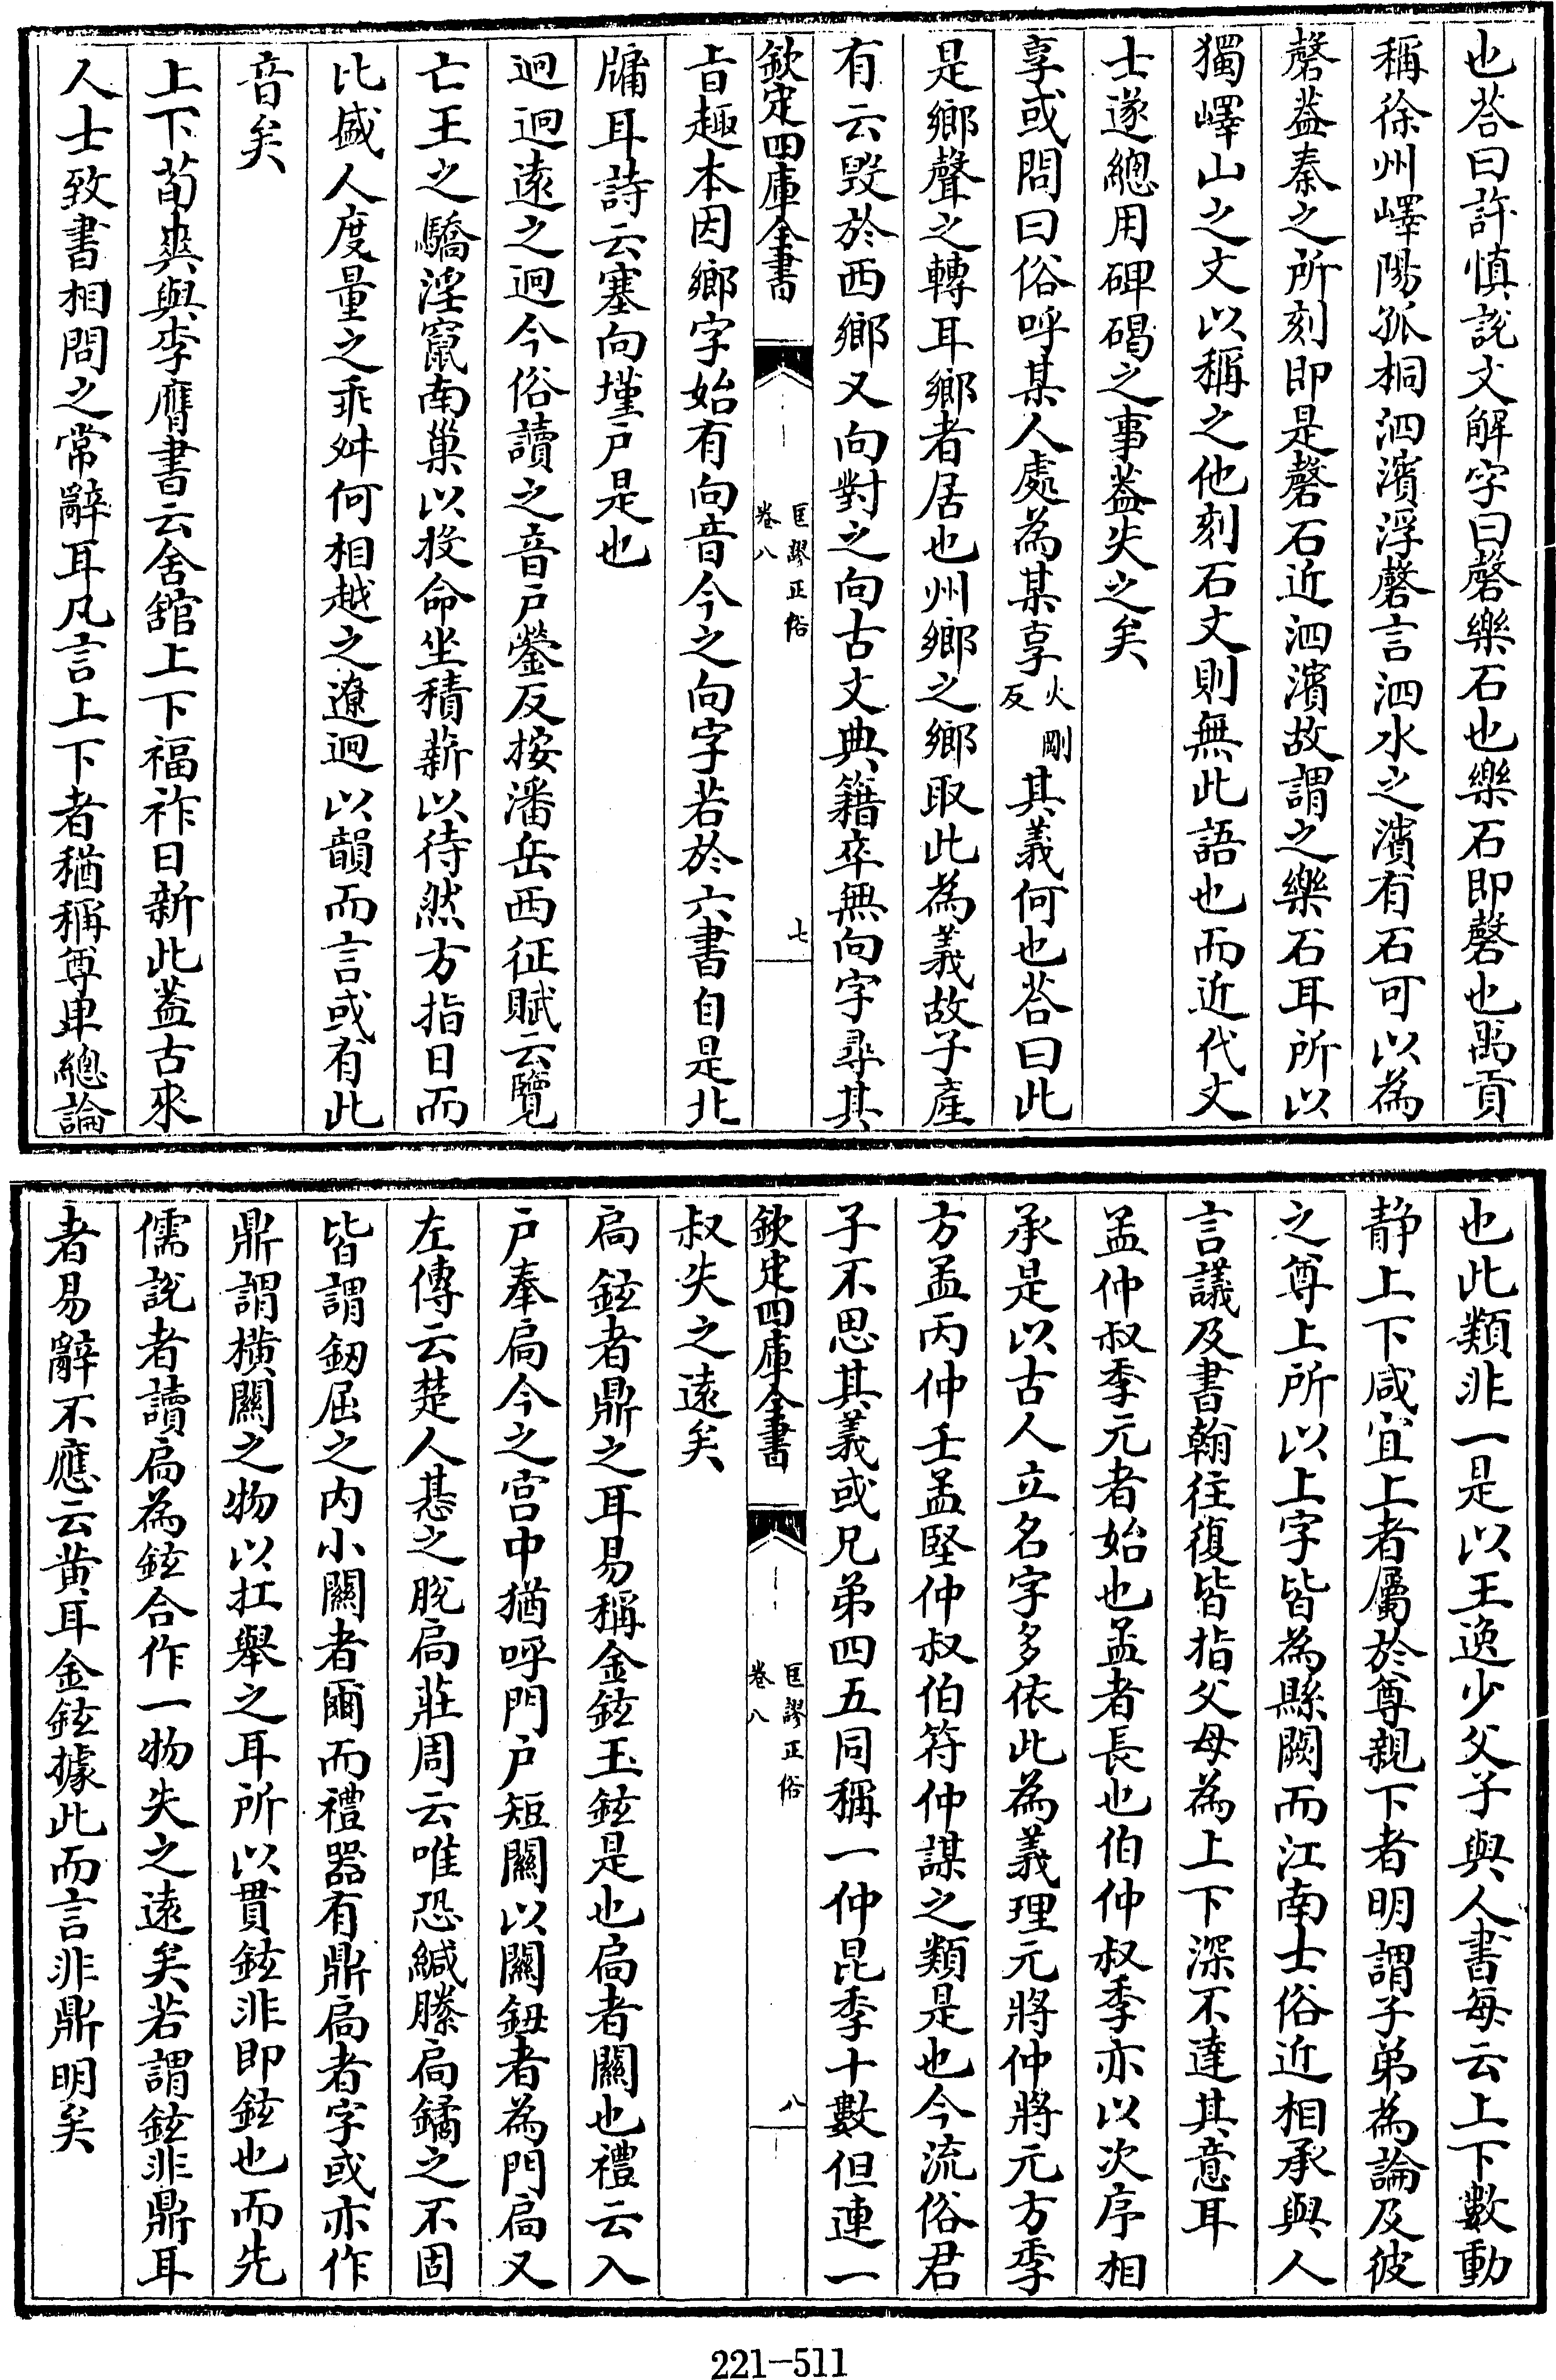 也荅曰許慎說文解字曰磬樂石也樂石即磬也禹貢
稱徐州嶧陽孤桐泗濱浮磬言泗水之濱有石可以為
磬葢秦之所刻即是磬石近泗濱故謂之樂石耳所以
獨嶧山之文以稱之他刻石文則無此語也而近代文
士遂總用碑碣之事葢失之矣
享或問曰俗呼某人處為某享火剛反其義何也荅曰此
是鄉聲之轉耳鄉者居也州鄉之鄉取此為義故子產
有云毀於西鄉又向對之向古文典籍卒無向字尋其
欽定四庫全書
匡謬正俗
卷八
七
旨趣本因鄉字始有向音今之向字若於六書自是北
牗耳詩云塞向墐户是也
迥 迥遠之迥今俗讀之音户鎣反按潘岳西征賦云覽
亡王之驕淫竄南巢以投命坐積薪以待然方指日而
比盛人度量之乖舛何相越之遼迥以韻而言或有此
音矣
上下荀爽與李膺書云舍舘上下福祚日新此葢古來
人士致書相問之常辭耳凡言上下者猶稱尊卑總論
也此類非一是以王逸少父子與人書每云上下數動
静上下咸宜上者屬於尊親下者明謂子弟為論及彼
之尊上所以上字皆為縣闕而江南士俗近相承與人
言議及書翰往復皆指父母為上下深不達其意耳
孟仲叔季元者始也孟者長也伯仲叔季亦以次序相
承是以古人立名字多依此為義理元將仲將元方季
方孟丙仲壬孟堅仲叔伯符仲謀之類是也今流俗君
子不思其義或兄弟四五同稱一仲昆季十數但連一
欽定四庫全書
匡謬正俗
卷八
八
叔失之遠矣
扃 鉉者鼎之耳易稱金鉉玉鉉是也扃者關也禮云入
户奉扃今之宫中猶呼門户短關以關鈕者為門扃又
左傳云楚人惎之脫扃莊周云唯恐緘縢扃鐍之不固
皆謂釼屈之内小關者爾而禮器有鼎扃者字或亦作
鼎謂橫關之物以扛舉之耳所以貫鉉非即鉉也而先
儒說者讀扃為鉉合作一物失之遠矣若謂鉉非鼎耳
者易辭不應云黄耳金鉉據此而言非鼎明矣
221-511